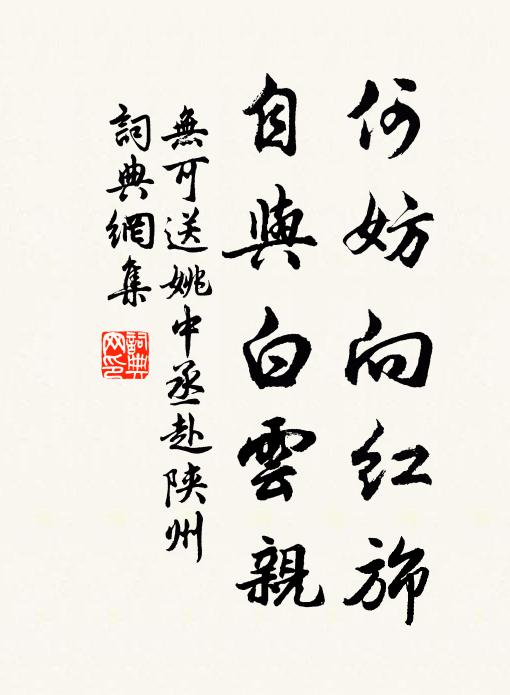 何妨向红旆
自與白雲親
無可送姚中丞赴陕州
詞典網集
詞典網印